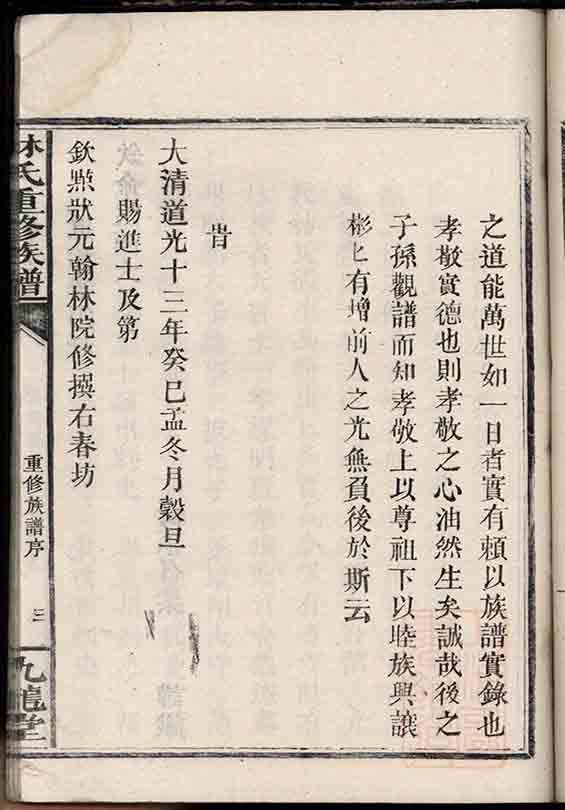 之道能萬世如一日者實有頼以族譜實錄也
孝敬實德也則孝敬之心油然生矣誠哉後之
子孫觀譜而知孝敬上以尊祖下以睦族興讓
彬匕有增前人之光無負後於斯云
旹
大清道光十三年癸巳孟冬月穀旦
欽㸃狀元翰林院修撰右春坊
賜進士及第
林氏重修族譜
重修族譜序
三
九龍堂